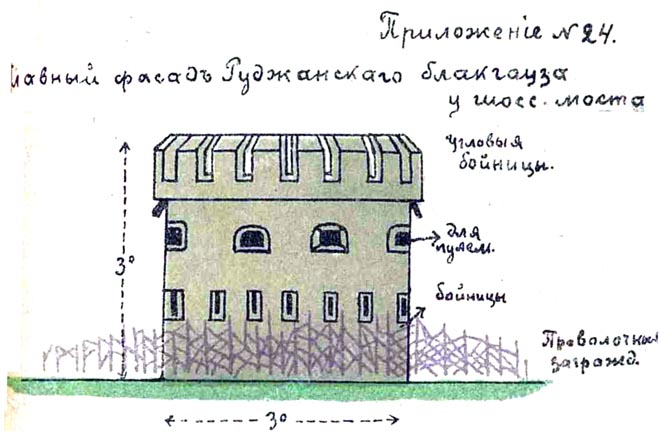 Приложеніе № 24.
лавный фасадъ Гуджанскаго блакгауза
у шосс. моста
угловыя
бойницы.
для
пулем.
3°
бойницы
Проволочныя
загражд.
3°